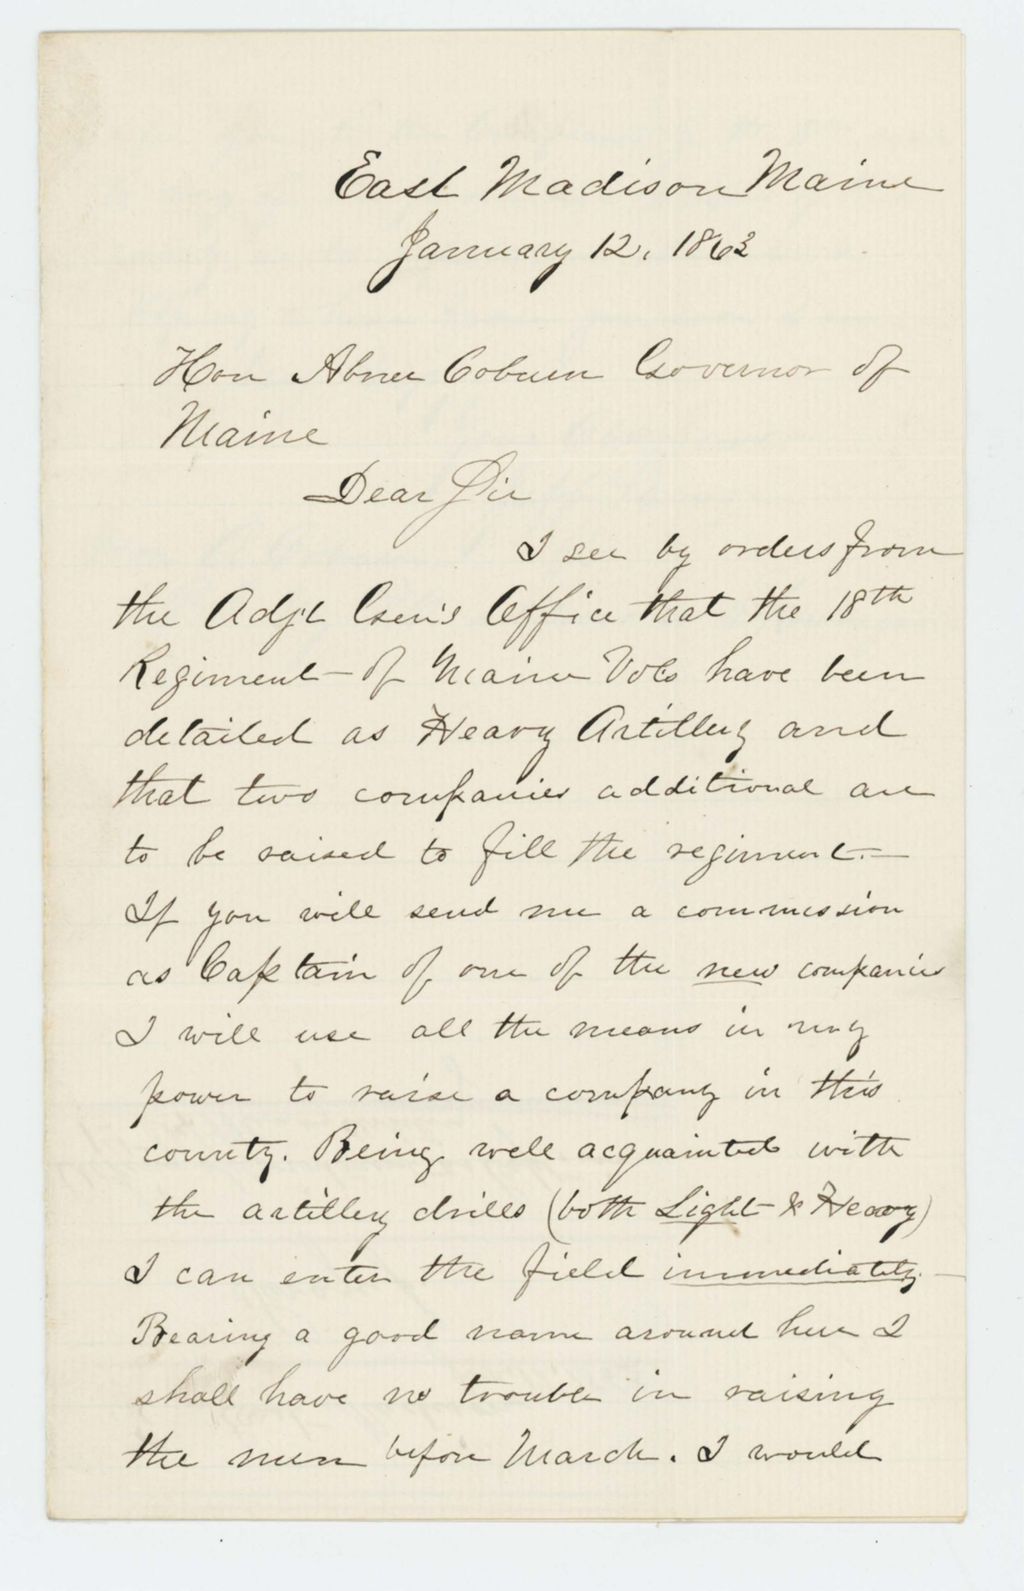 East Madison Maine
January 12, 1863
Hon Abner Coburn Governor of
Maine
Dear Sir
I see by orders from
the Adj't Gen's Office that the 18th
Regiment of Maine Vols have been
detailed as Heavy Artillery and
that two companies additional are
to be raised to fill the regiment.—
If you will send me a commission
as Captain of one of the new companies
I will use all the means in my
power to raise a company in this
county. Being well acquainted with
the artillery drills (both Light & Heavy)
I can enter the field immediately.—
Bearing a good name around here I
shall have no trouble in raising
the men before March. I would